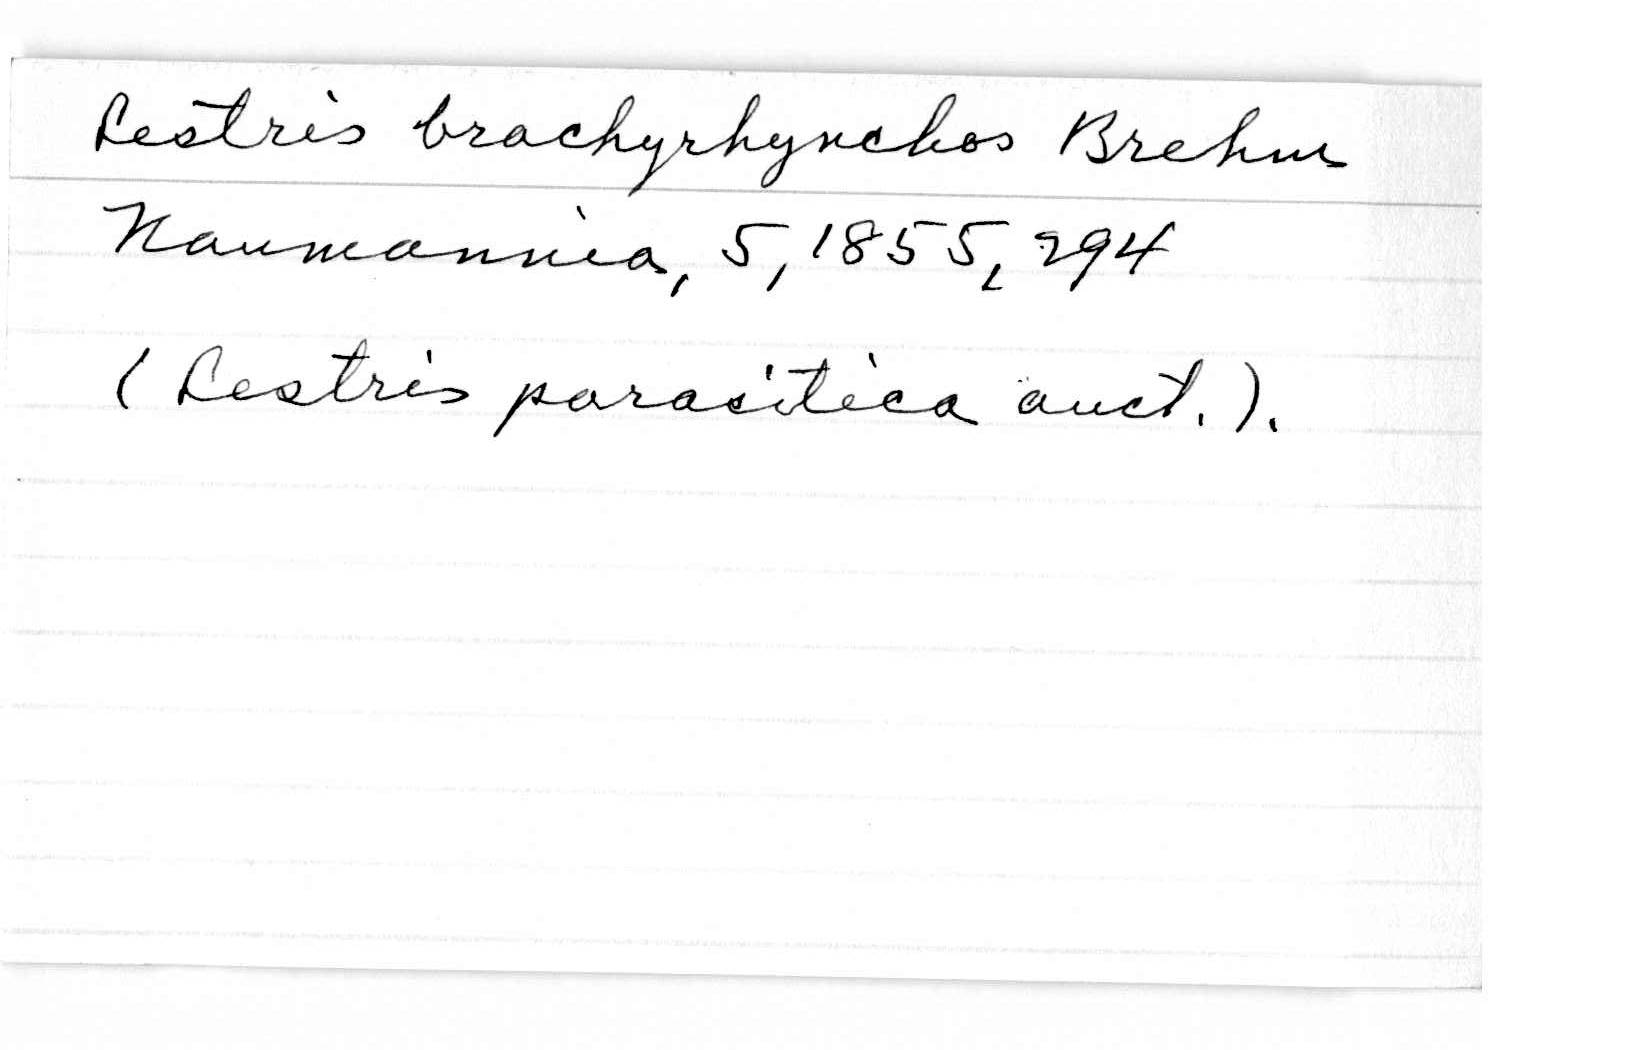 Lestris brachyrhynchos Brehm
Naumannia, 5, 1855, 294
(Lestris parasitica auct.).